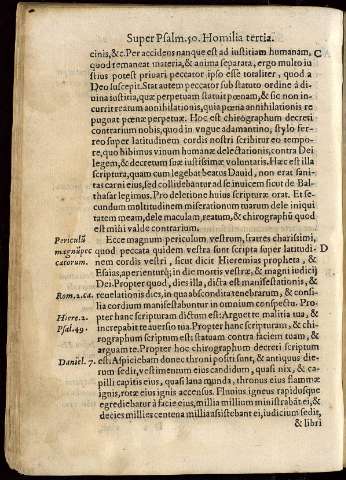 Super Psalm. 50. Homilia tertia.
cinis, &c. Per accidens nanque est ad iustitiam humanam, C
quod remaneat materia, & anima separata, ergo multo iu
stius potest priuari peccator ipso esse totaliter, quod a
Deo suscepit. Stat autem peccator sub statuto ordine â di-
uina iustitia, quæ perpetuam statuit pœnam, & sic non in-
currit reatum annihilationis, quia pœna annihilationis re
pugnat pœnæ perpetuæ. Hoc est chirographum decreti
contrarium nobis, quod in vngue adamantino, stylo fer-
reo super latitudinem cordis nostri scribitur eo tempo-
re, quo bibimus vinum humanæ delectationis, contra Dei
legem, & decretum suæ iustissimæ voluntatis. Hæc est illa
scriptura, quam cum legebat beatus Dauid, non erat sani-
tas carni eius, sed collidebantur ad se inuicem sicut de Bal-
thasar legimus. Pro deletione huius scripturæ orat. Et se-
cundum multitudinem miserationum tuarum dele iniqui
tatem meam, dele maculam, reatum, & chirographũ quod
est mihi valde contrarium.
Periculũ Ecce magnum periculum vestrum, fratres charissimi,
magnũ pec quod peccata quidem vestra sunt scripta super latitudi- D
catorum. nem cordis vestri, sicut dicit Hieremias propheta, &
Esaias, aperientur in die mortis vestræ, & magni iudicij
Dei. Propter quod, dies illa, dicta est manifestationis, &
Rom. 2. ca. reuelationis dies, in qua abscondita tenebrarum, & consi-
lia cordium manifestabuntur in omnium conspectu. Pro-
Hiere. 2. pter hanc scripturam dictum est: Arguet te malitia tua, &
Psal. 49. increpabit te auersio tua. Propter hanc scripturam, & chi-
rographum scriptum est: statuam contra faciem tuam, &
arguam te. Propter hoc chirographum decreti scriptum
Daniel. 7. est: Aspiciebam donec throni positi sunt, & antiquus die-
rum sedit, vestimentum eius candidum, quasi nix, & ca-
pilli capitis eius, quasi lana munda, thronus eius flammæ
ignis, rotæ eius ignis accensus. Fluuius igneus rapidusque
egrediebatur à facie eius, millia millium ministrabãt ei, &
decies millies centena millia assistebant ei, iudicium sedit,
& libri